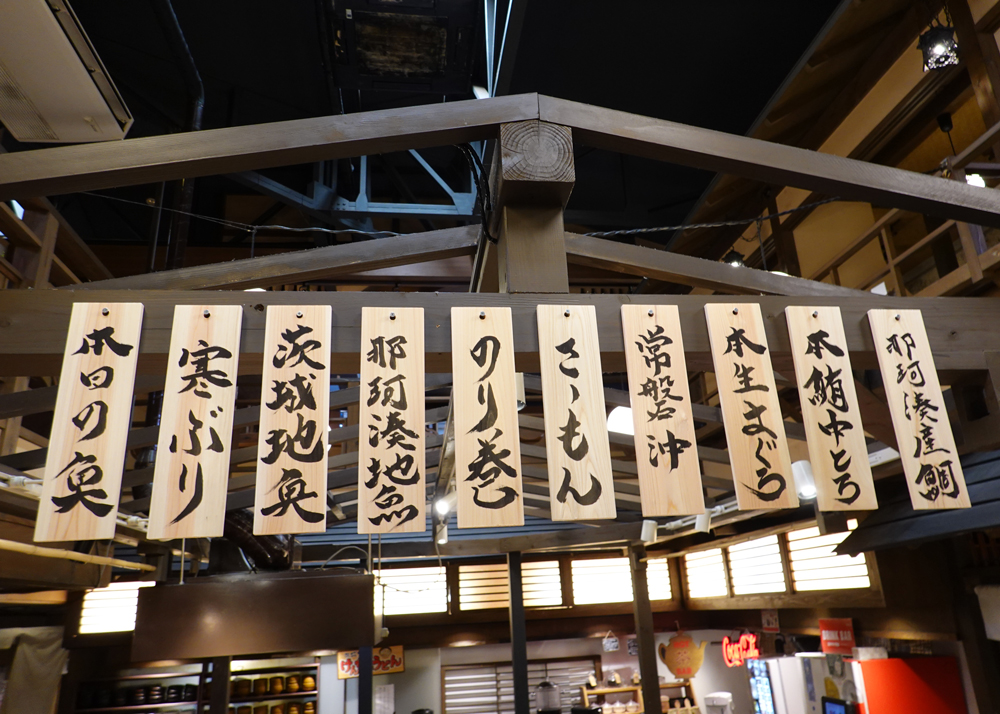 本日の魚
寒ぶり
茨城地魚
那珂湊地魚
のり巻き
さゝもん
常磐沖
本生まぐろ
本鮪中とろ
那珂湊産鯛
Coca-Cola